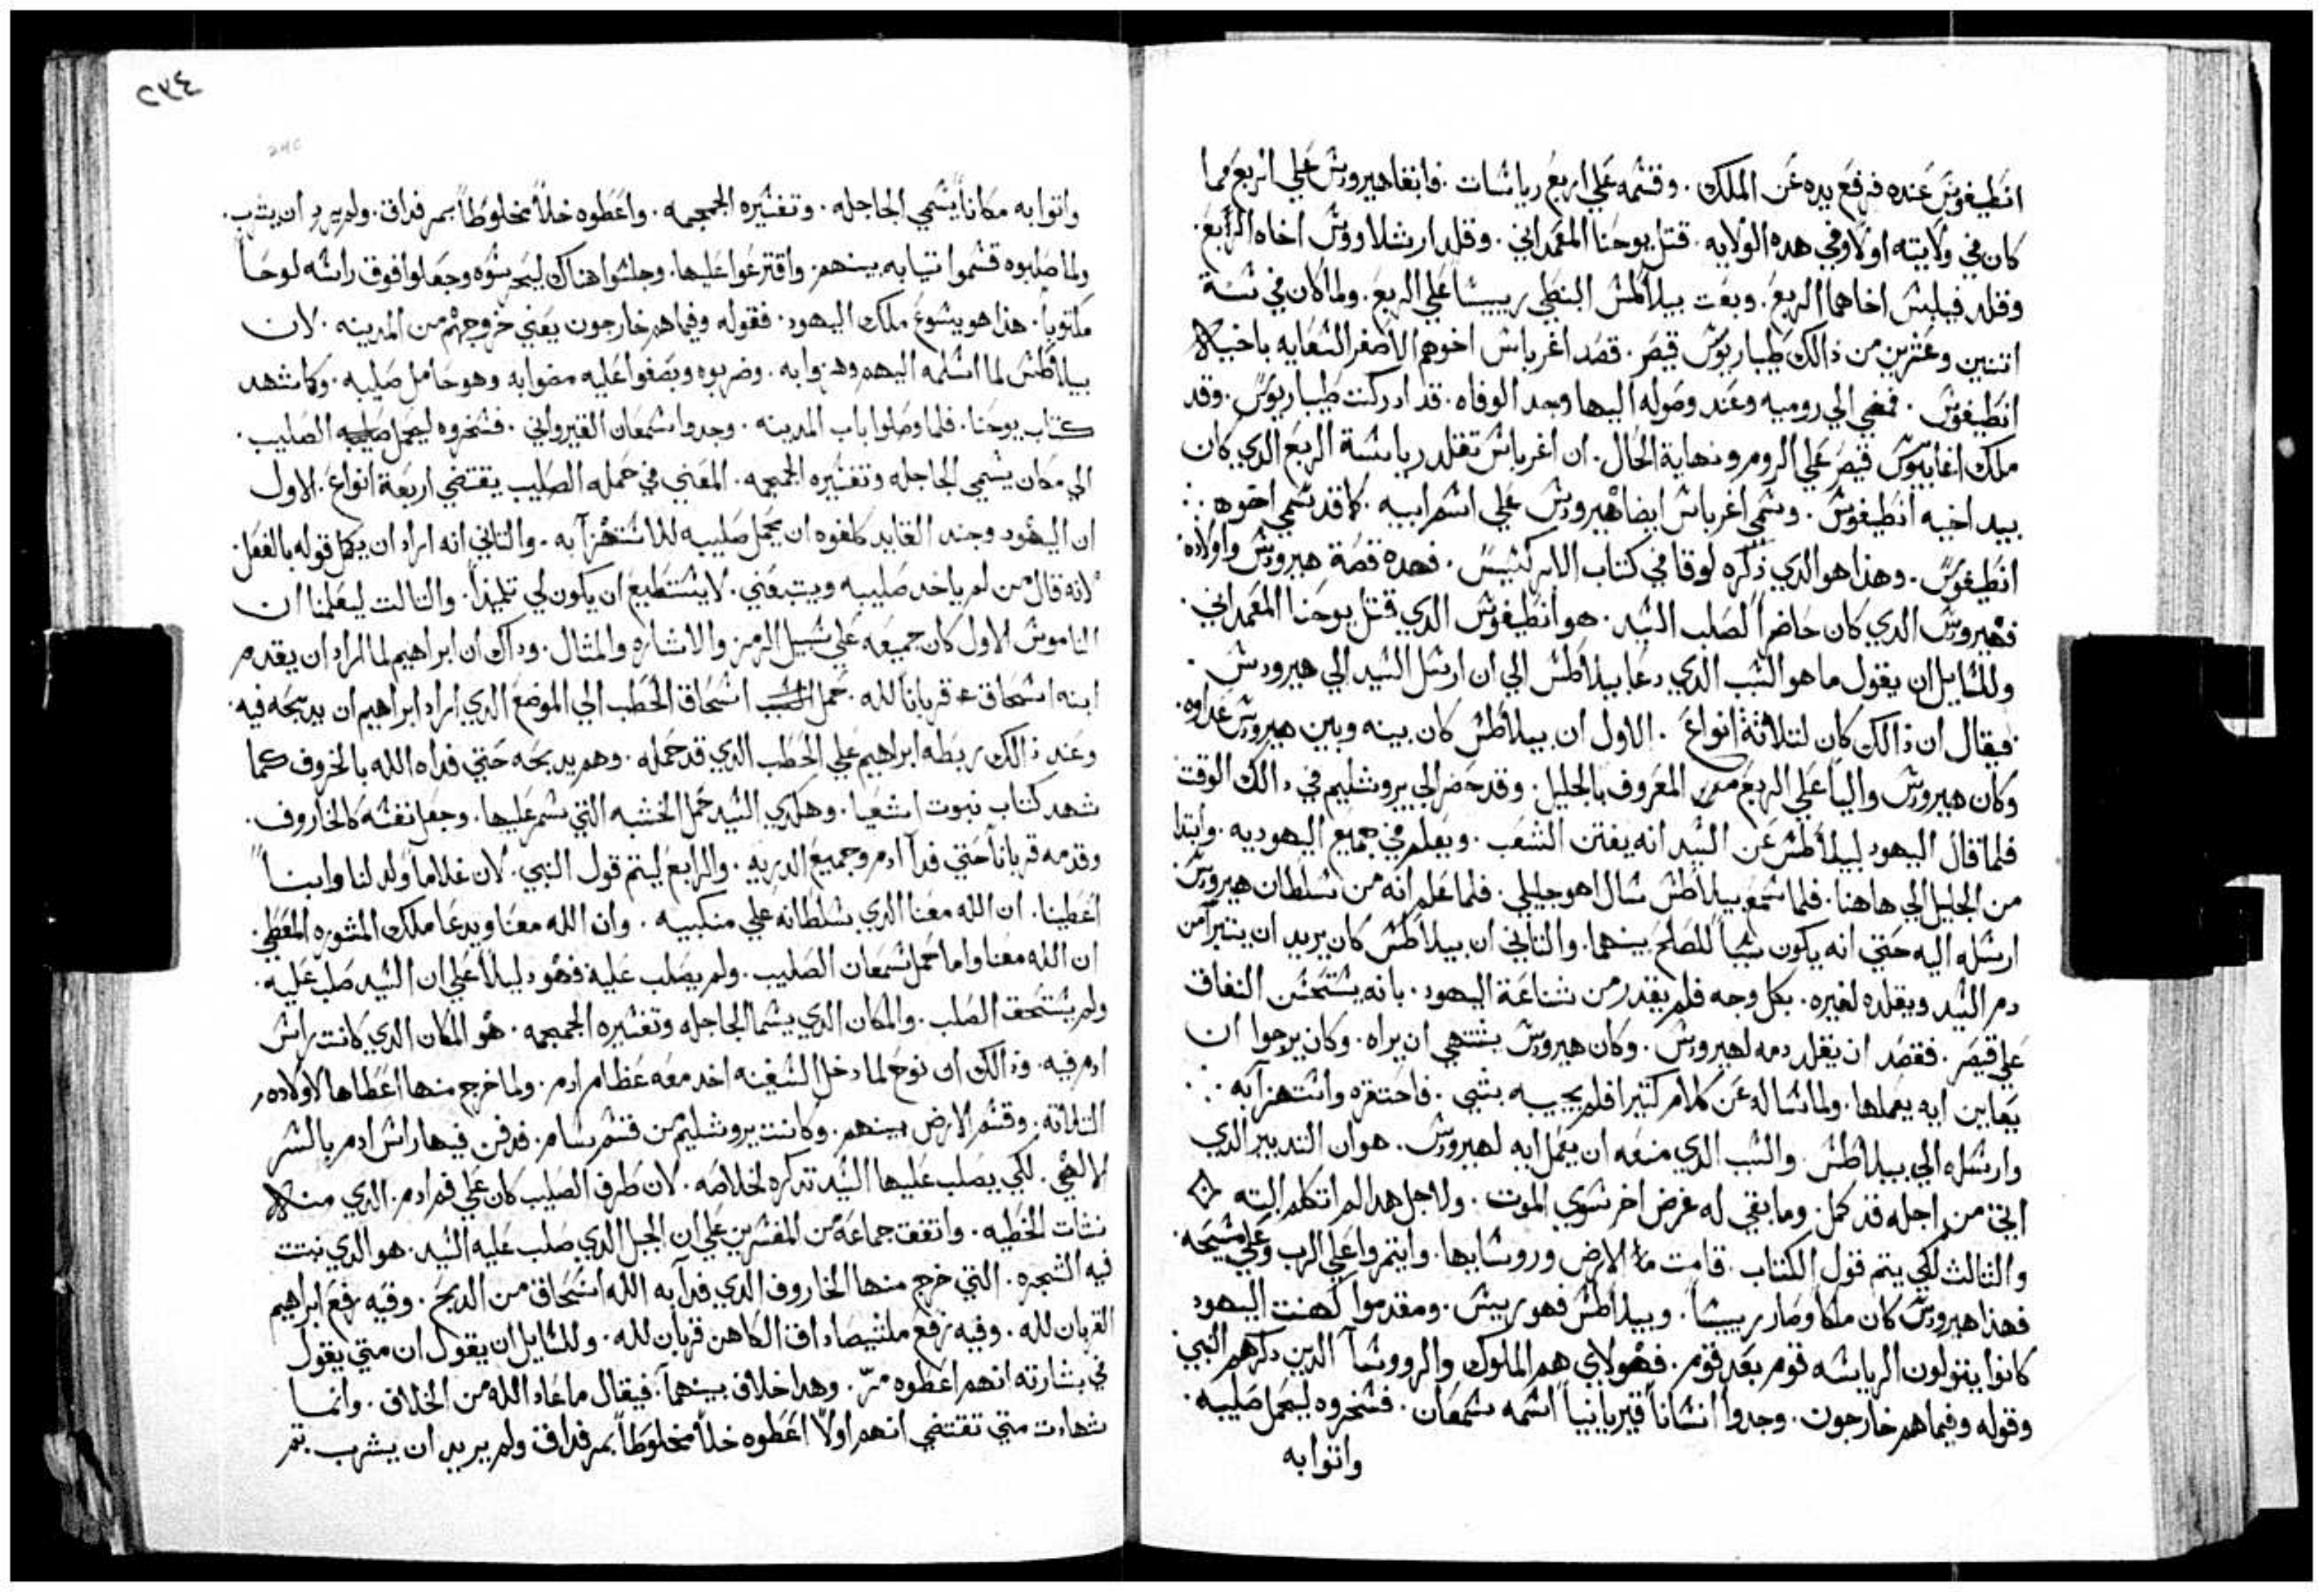 انطيفوس عنده فرفع يده عن الملك . وقسمه علي اربع رياسات . فابقا هيرودس علي الربع مما
كان في ولايته اولا وفي هده الولايه . قتل يوحنا المعمداني . وقلد ارشلاووس اخاه الربع .
وقلد فيلبس اخاهما الربع . وبعت بيلاطس البنطي رييسا علي الربع . ولما كان في سنة
اتنين وعشرين من ذالك طيباريوس قيصر . قصد اغرباس اخوهم الاصغر السعايه باخيه
انطيفوس . فمضي الي روميه وعند وصوله اليها وجد الوفاه . قد ادركت طيباريوس . وقد
ملك اغاييوس قيصر علي الروم ونهاية الحال . ان اغرباس تقلد رياسة الربع الدي كان
بيد اخيه انطيفوس . وسمي اغرباس ايضا هيرودس علي اسم ابيه . كما قد سمي اخوه :
انطيفوس . وهذا هو الدي ذكره لوقا في كتاب الابركسيس . فهده قصة هيرودس واولاده
فهيرودس الدي كان حاضرا لصلب السيد . هو انطيفوس الدي قتل يوحنا المعمداني .
وللسايل ان يقول ما هو السبب الدي دعا بيلاطس الي ان ارسل السيد الي هيرودس .
فيقال ان ذالك كان لتلاثة انواع . الاول ان بيلاطس كان بينه وبين هيرودس عداوه .
وكان هيرودس واليا علي الربع المعروف بالجليل . وقد حضر الي يروشليم في دالك الوقت
فلما قال اليهود لبيلاطس عن السيد انه يفتن الشعب . ويعلم في جميع اليهوديه . وابتدا
من الجليل الي هاهنا . فلما سمع بيلاطس سال اهو جليلي . فلما علم انه من سلطان هيرودس
ارسله اليه حتي انه يكون سببا للصلح بينهما . والتاني ان بيلاطس كان يريد ان يتبرا من
دم السيد ويقلده لغيره . بكل وجه فلم يقدر من شناعة اليهود . بانه يستحسن النفاق
علي قيصر . فقصد ان يقلد دمه لهيرودس . وكان هيرودس يشتهي ان يراه . وكان يرجوا ان
يعاين ايه يعملها . ولما ساله عن كلام كتير فلم يجيبه بشي . فاحتقره واستهزا به :
وارسله الي بيلاطس والسبب الدي منعه ان يعمل ايه لهيرودس . هو ان التدبير الدي
اتي من اجله قد كمل . وما بقي له غرض اخر سوي الموت . ولاجل هدا لم اتكلم البته
والتالت لكي يتم قول الكتاب . قامت الارض وروسايها . وايتمروا علي الرب وعلي مسيحه .
فهذا هيرودس كان ملكا وصار رييسا . وبيلاطس فهو رييس . ومقدموا كهنت اليهود
كانوا يتولون الرياسه قوم بعد قوم . فهولاي هم الملوك والرووسا الدين دكرهم النبي
وقوله وفيما هم خارجون . وجدوا انسانا قيريانيا اسمه سمعان . فسخروه ليحمل صليبه .
واتوا به
٢٧٤
واتوا به مكانا يسمي الجاجله . وتفسيره الجمجمه . واعطوه خلا مخلوطا بمر فداق . ولم يرد ان يشرب .
ولما صلبوه قسموا تيابه بينهم . واقترعوا عليها . وجلسوا هناك ليحرسوه وجعلوا فوق راسه لوحا
مكتوبا . هذا هو يشوع ملك اليهود . فقوله وفيما هم خارجون يعني خروجهم من المدينه . لان
بيلاطس لما اسلمه اليهم وهزوا به . وضربوه وبصقوا عليه مضوا به وهو حامل صليبه . وكما شهد
كتاب يوحنا . فلما وصلوا باب المدينه . وجدوا سمعان القيرواني . فسخروه ليحمل الصليب .
الي مكان يسمي الجاجله وتفسيره الجمجمه . المعني في حمله الصليب يقتضي اربعة انواع . الاول
ان اليهود وجند القايد كلفوه ان يحمل صليبه للاستهزا به . والتاني انه اراد ان يكمل قوله بالفعل .
لانه قال من لم ياخد صليبه ويتبعني . لا يستطيع ان يكون لي تلميذا . والتالت ليعلمنا ان
الناموس الاول كان جميعه علي سبيل الرمز والاشاره والمتال . وداك ان ابراهيم لما اراد ان يقدم
ابنه اسحاق قربانا لله . حمل اسحاق الحطب الي الموضع الدي اراد ابراهيم ان يدبحه فيه .
وعند ذالك ربطه ابراهيم علي الحطب الدي قد حمله . وهم يدبحه حتي فداه الله بالخروف كما
شهد كتاب نبوت اشعيا . وهكدي السيد حمل الخشبه التي سمر عليها . وجعل نفسه كالخاروف .
وقدمه قربانا حتي فدا ادم وجميع الدريه . والرابع ليتم قول النبي . لان غلاما ولد لنا وابنا
اعطينا . ان الله معنا الدي سلطانه علي منكبيه . وان الله معنا ويدعا ملك المشوره العظمي .
ان الله معنا واما حمل سمعان الصليب . ولم يصلب عليه فهو دليلا علي ان السيد صلب عليه .
ولم يستحق الصلب . والمكان الدي يسما الجاجله وتفسيره الجمجمه . هو المكان الدي كانت راس
ادم فيه . وذالك ان نوح لما دخل السفينه اخد معه عظام ادم . ولما خرج منها اعطاها لاولاده
التلاته . وقسم الارض بينهم . وكانت يروشليم من قسم سام . فدفن فيها راس ادم بالسر
الالهي . لكي يصلب عليها السيد تدكره لخلاصه . لان طرف الصليب كان علي فم ادم . الدي منه
نشات الخطيه . واتفقت جماعة من المفسرين علي ان الجبل الدي صلب عليه السيد . هو الدي نبتت
فيه الشجره . التي خرج منها الخاروف الدي فدا به الله اسحاق من الدبح . وفيه رفع ابراهيم
القربان لله . وفيه رفع ملشيصاداق الكاهن قربان لله . وللسايل ان يقول ان متي يقول
في بشارته انهم اعطوه مر . وهدا خلاف بينهما . فيقال ماعاد الله من الخلاف . وانما
شهادت متي تقتضي انهم اولا اعطوه خلا مخلوطا بمر فداق ولم يريد ان يشرب . تم